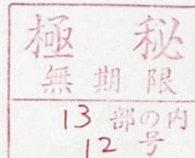 極秘
無期限
13部の内
12号